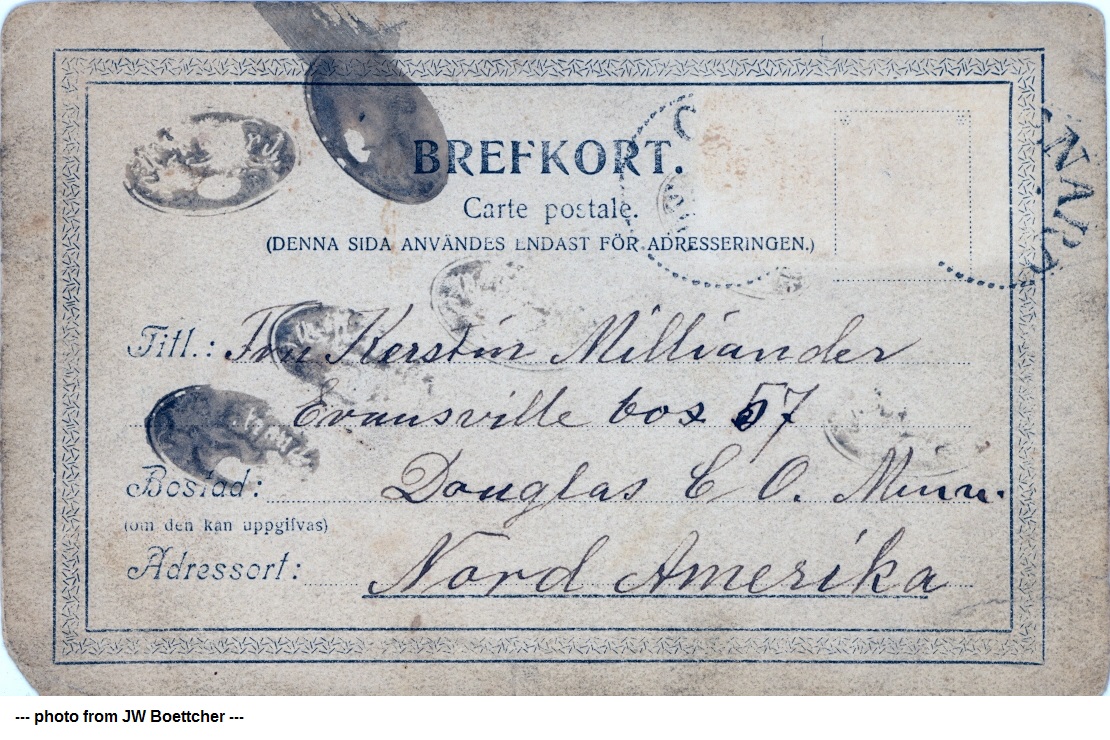 BREFKORT.
Carte postale.
(DENNA SIDA ANVÄNDES ENDAST FÖR ADRESSERINGEN.)
Titl.: Fru Kerstin Milliander
Evansville box 57
Bostad: Douglas C O. Minn.
(om den kan uppgifvas)
Adressort: Nord Amerika
--- photo from JW Boettcher ---